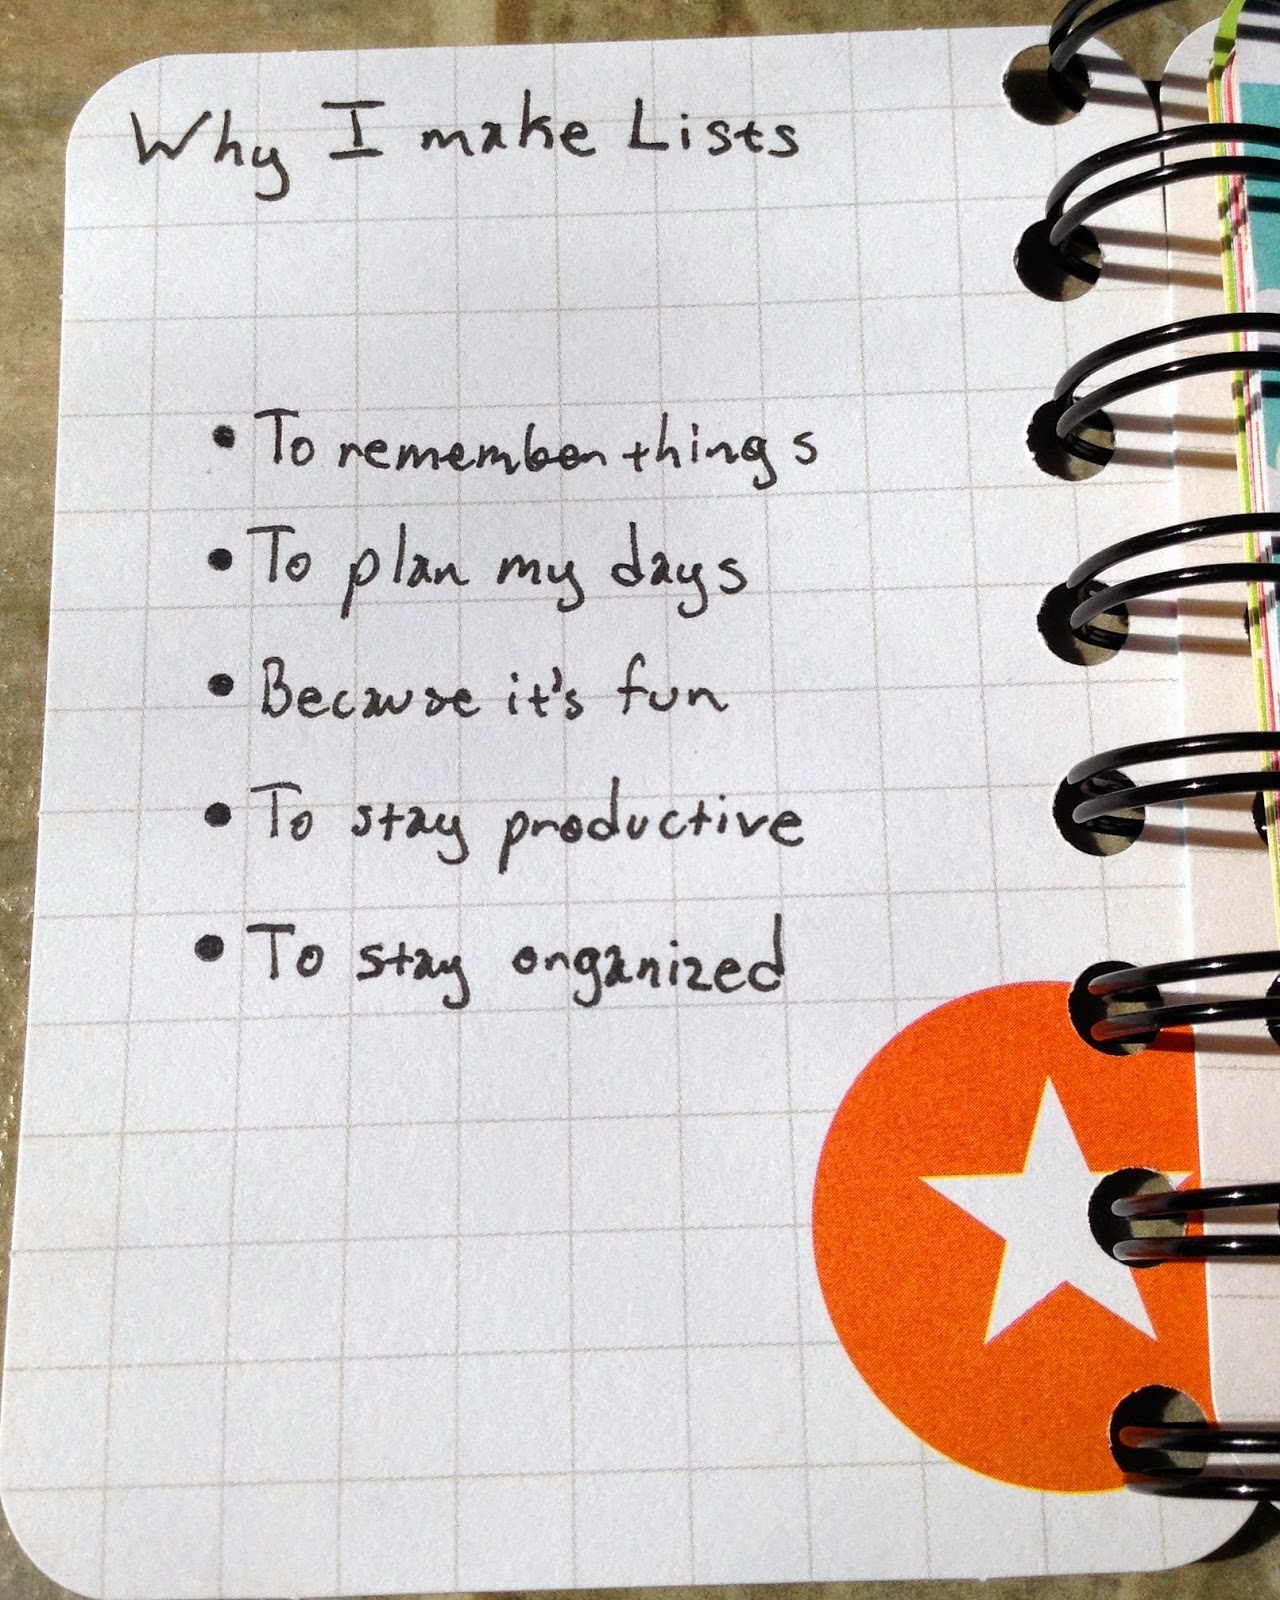 Why I make Lists
• To remember things
• To plan my days
• Because it's fun
• To stay productive
• To stay organized